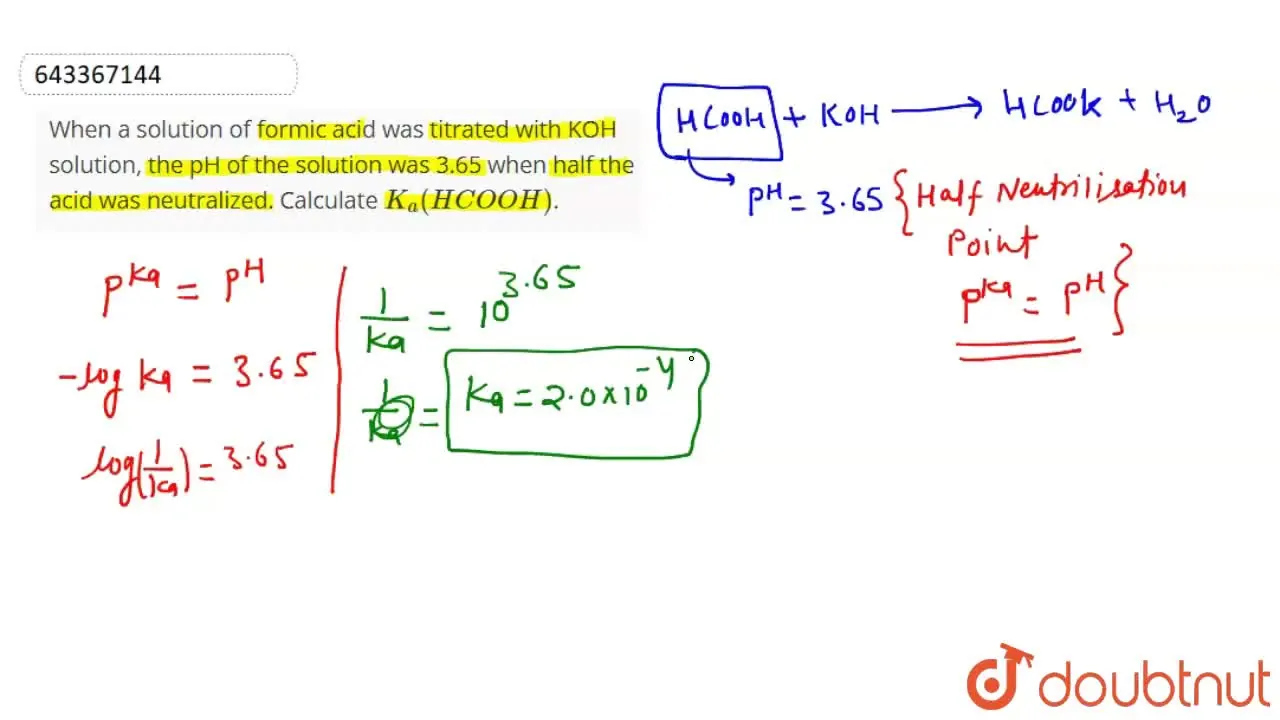 643367144
When a solution of formic acid was titrated with KOH
solution, the pH of the solution was 3.65 when half the
acid was neutralized. Calculate Kₐ(HCOOH).
HCOOH + KOH ⟶ HCOOK + H₂O
pH = 3.65 { Half Neutrilisation
Point
pKa = pH }
pKa = pH
-log Ka = 3.65
log(1/Ka) = 3.65
1/Ka = 10^3.65
1/Ka =
Ka = 2.0×10^-4
doubtnut